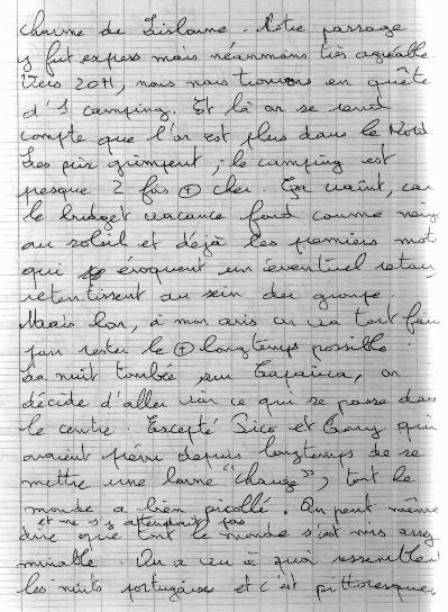 charme de Lisbonne. Notre passage
y fut express mais néanmoins très agréable.
Vers 20H, nous nous trouvons en quête
d'1 camping. Et là on se rend
compte que l'on est plus dans le Nord.
Les prix grimpent ; le camping est
presque 2 fois ⊕ cher. Ça craint, car
le budget vacance fond comme neige
au soleil et déjà les premiers mots
qui évoquent un éventuel retour,
retentissent au sein du groupe.
Mais bon, à mon avis on va tout faire
pour rester le ⊕ longtemps possible.
La nuit tombée sur, on
décide d'aller voir ce qui se passe dans
le centre. Excepté Sico et qui
avaient prévu depuis longtemps de se
mettre une bonne "", tout le
monde a bien picollé. On peut même
et ne s'y attendait pas
dire que tout le monde s'est mis assez
minable. On a vu à quoi ressemblent
les nuits portugaises et c'est pittoresque,